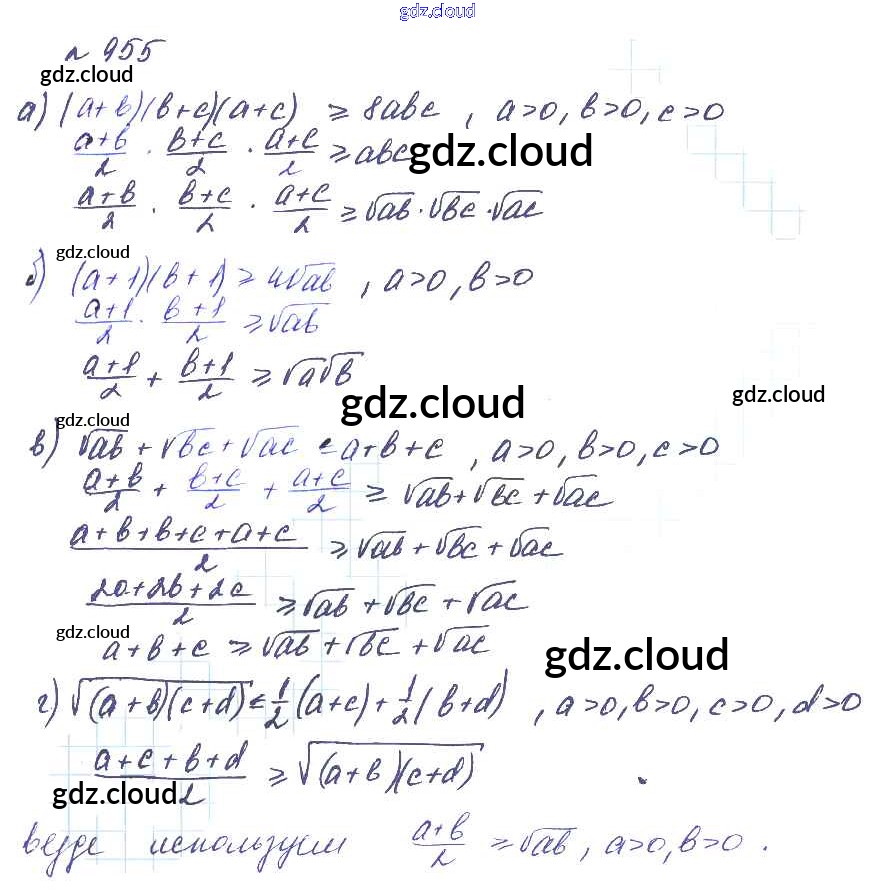 gdz.cloud
№ 955
gdz.cloud
а) (a+b)(b+c)(a+c) ≥ 8abc , a>0, b>0, c>0
(a+b)/2 · (b+c)/2 · (a+c)/2 ≥ abc
gdz.cloud
(a+b)/2 · (b+c)/2 · (a+c)/2 ≥ √ab · √bc · √ac
gdz.cloud
б) (a+1)(b+1) ≥ 4√ab , a>0, b>0
(a+1)/2 · (b+1)/2 ≥ √ab
(a+1)/2 + (b+1)/2 ≥ √a√b
gdz.cloud
gdz.cloud
gdz.cloud
в) √ab + √bc + √ac ≤ a+b+c , a>0, b>0, c>0
(a+b)/2 + (b+c)/2 + (a+c)/2 ≥ √ab + √bc + √ac
(a+b+b+c+a+c)/2 ≥ √ab + √bc + √ac
(2a+2b+2c)/2 ≥ √ab + √bc + √ac
gdz.cloud
a+b+c ≥ √ab + √bc + √ac
gdz.cloud
г) √((a+b)(c+d)) ≤ 1/2 (a+c) + 1/2 (b+d) , a>0, b>0, c>0, d>0
(a+c+b+d)/2 ≥ √((a+b)(c+d))
gdz.cloud
везде используем (a+b)/2 ≥ √ab , a>0, b>0 .